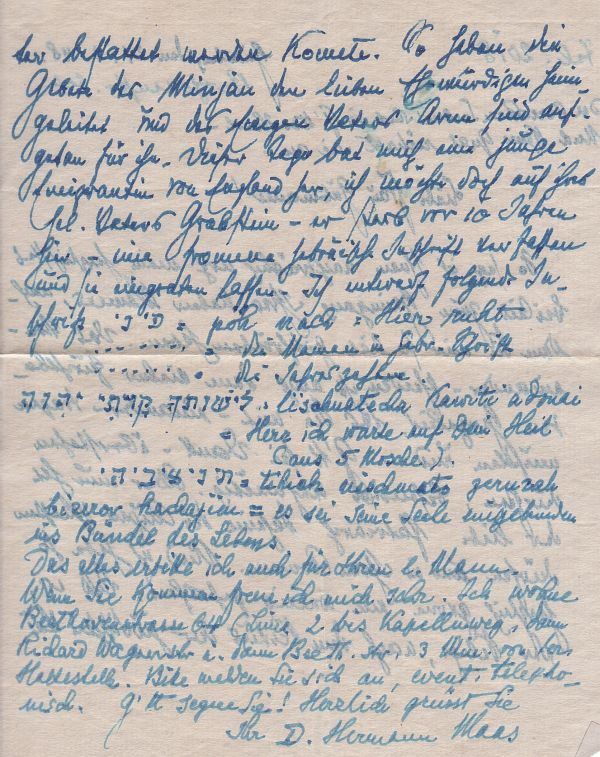 ter bestattet werden konnte. So haben die
Gebete des Minjan den lieben Ehrwürdigen heim
geleitet und des ewigen Vaters Arme sind auf-
getan für ihn. Dieser Tage bat mich eine junge
Emigrantin von England her, ich möchte doch auf ihres
sel. Vaters Grabstein - er starb vor 10 Jahren
hier - eine fromme hebräische Inschrift verfassen
und sie eingraben lassen. Ich entwarf folgende In-
schrift פ׳נ׳ = poh nach = Hier ruht -
......... = die Namen in hebr. Schrift
......... = die Jahreszahlen.
לישועתך קויתי יהוה = lischuatecha kawiti adonai
= Herr ich warte auf Dein Heil
(aus 5 Mosche).
ת׳נ׳צ׳ב׳ה׳ = tihieh nischmato zerurah
bizeror hachajim = es sei seine Seele eingebunden
ins Bündel des Lebens
Das alles erbitte ich auch für Ihren l. Mann.
Wenn Sie kommen freue ich mich sehr. Ich wohne
Beethovenstrasse Linie 2 bis Kapellenweg, dann
Richard Wagnerstr u. dann Beeth. str. 3 Min. von der
Haltestelle. Bitte melden Sie sich an, event. telepho-
nisch. G'tt segne Sie! Herzlich grüsst Sie
Ihr D. Hermann Maas